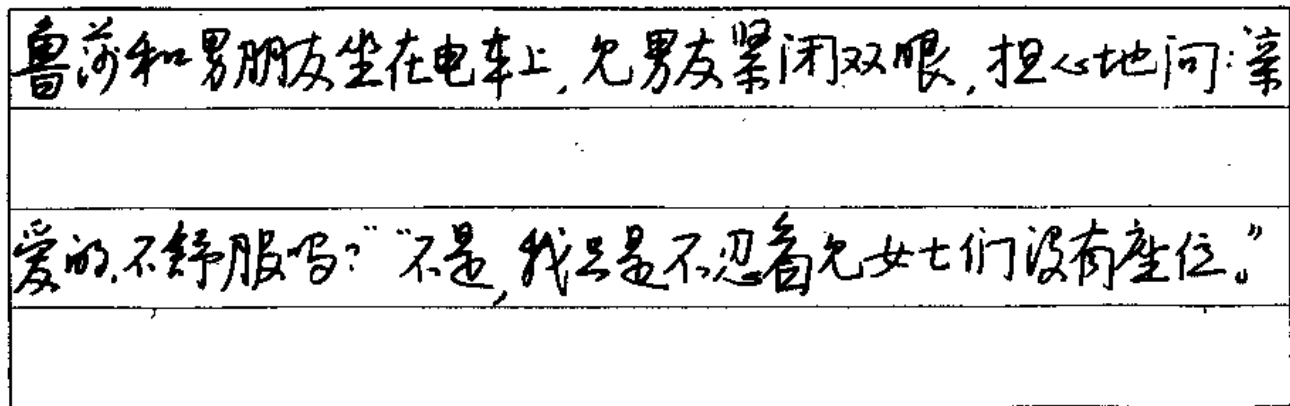 鲁莎和男朋友坐在电车上,见男友紧闭双眼,担心地问:亲
爱的,不舒服吗?”“不是,我只是不忍看见女士们没有座位。”